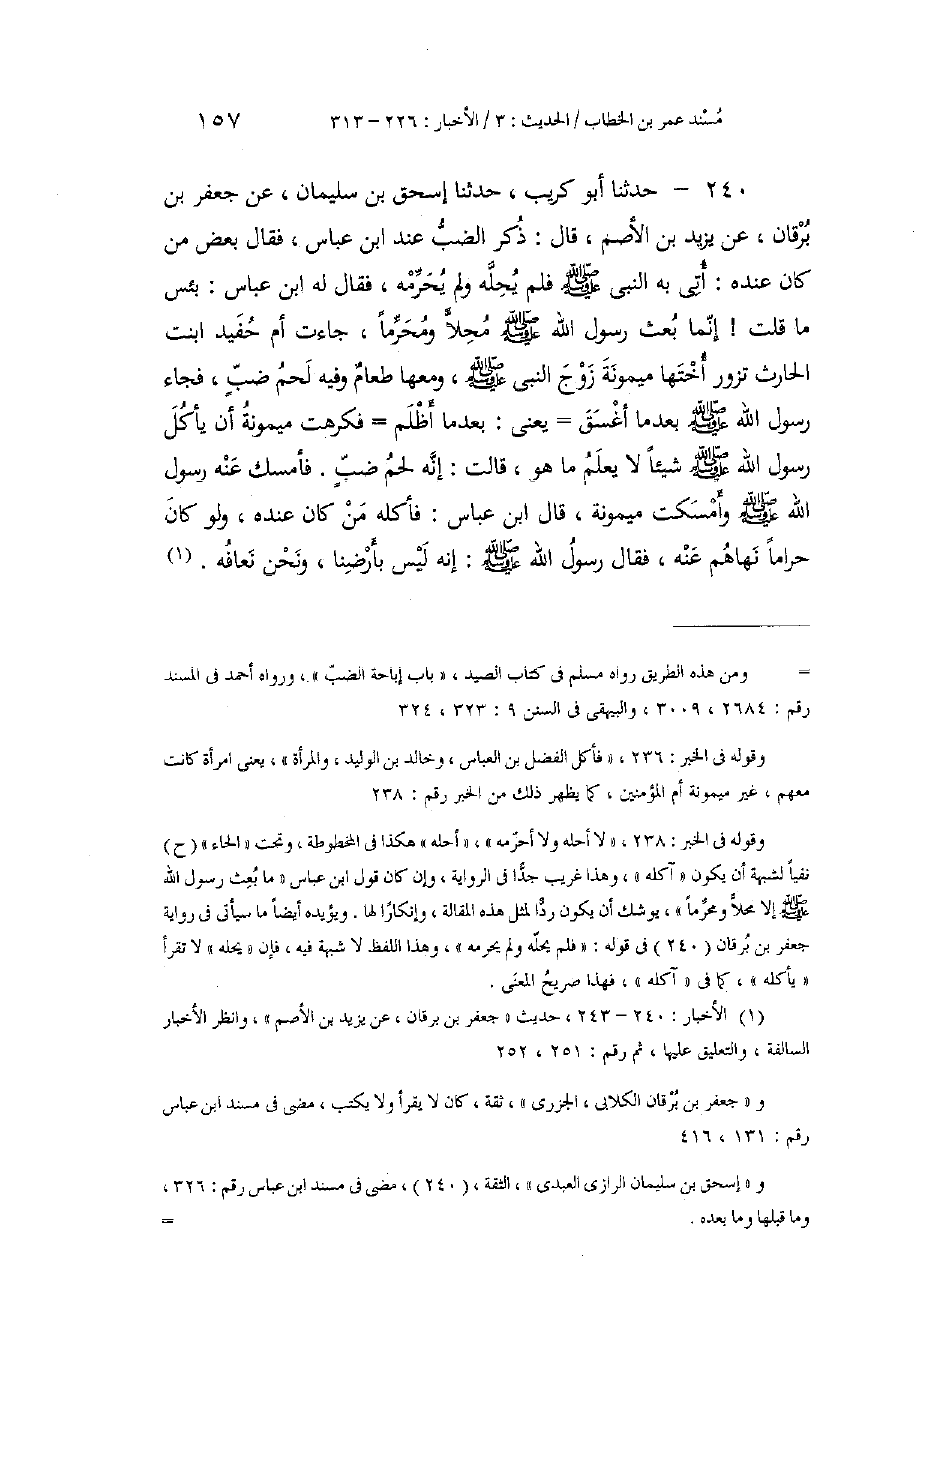 مُسْند عمر بن الخطاب / الحديث : ٣ / الأخبار : ٢٢٦ – ٣١٣ ١٥٧
٢٤٠ – حدثنا أبو كريب ، حدثنا إسحق بن سليمان ، عن جعفر بن
بُرْقان ، عن يزيد بن الأصم ، قال : ذُكر الضبُّ عند ابن عباس ، فقال بعض من
كان عنده : أُتِى به النبى ﷺ فلم يُحِلَّه ولم يُحَرِّمْه ، فقال له ابن عباس : بئس
ما قلت ! إنّما بُعث رسول الله ﷺ مُحِلاًّ ومُحَرِّماً ، جاءت أم حُفَيد ابنت
الحارث تزور أُخْتَها ميمونَةَ زَوْجَ النبى ﷺ ، ومعها طعامٌ وفيه لَحمُ ضبّ ، فجاء
رسول الله ﷺ بعدما أغْسَقَ = يعنى : بعدما أَظْلَم = فكرهت ميمونةُ أن يأكُلَ
رسول الله ﷺ شيئاً لا يعلَمُ ما هو ، قالت : إنَّه لحمُ ضبّ . فأمسك عَنْه رسول
الله ﷺ وأَمْسَكت ميمونة ، قال ابن عباس : فأكله مَنْ كان عنده ، ولو كانَ
حراماً نَهاهُم عَنْه ، فقال رسولُ الله ﷺ : إنه لَيْس بأَرْضِنا ، ونَحْن نَعافُه . (١)
= ومن هذه الطريق رواه مسلم فى كتاب الصيد ، « باب إباحة الضبّ » ، ورواه أحمد فى المسند
رقم : ٢٦٨٤ ، ٣٠٠٩ ، والبيهقى فى السنن ٩ : ٣٢٣ ، ٣٢٤
وقوله فى الخبر : ٢٣٦ ، « فأكل الفضل بن العباس ، وخالد بن الوليد ، والمرأة » ، يعنى امرأة كانت
معهم ، غير ميمونة أم المؤمنين ، كما يظهر ذلك من الخبر رقم : ٢٣٨
وقوله فى الخبر : ٢٣٨ ، « لا أحله ولا أحرّمه » ، « أحله » هكذا فى المخطوطة ، وتحت « الحاء » (ح)
نفياً لشبهة أن يكون « آكله » ، وهذا غريب جدًّا فى الرواية ، وإن كان قول ابن عباس « ما بُعِث رسول الله
ﷺ إلا محلاًّ ومحرِّماً » ، يوشك أن يكون ردًّا لمثل هذه المقالة ، وإنكارًا لها . ويؤيده أيضاً ما سيأتى فى رواية
جعفر بن بُرقان (٢٤٠) فى قوله : « فلم يحلّه ولم يحرمه » ، وهذا اللفظ لا شبهة فيه ، فإن « يحله » لا تقرأ
« يأكله » ، كما فى « آكله » ، فهذا صريحُ المعنَى .
(١) الأخبار : ٢٤٠ – ٢٤٣ ، حديث « جعفر بن برقان ، عن يزيد بن الأصم » ، وانظر الأخبار
السالفة ، والتعليق عليها ، ثم رقم : ٢٥١ ، ٢٥٢
و « جعفر بن بُرْقان الكلابى ، الجزرى » ، ثقة ، كان لا يقرأ ولا يكتب ، مضى فى مسند ابن عباس
رقم : ١٣١ ، ٤١٦
و « إسحق بن سليمان الرازى العبدى » ، الثقة ، (٢٤٠) ، مضى فى مسند ابن عباس رقم : ٣٢٦ ،
وما قبلها وما بعده . =